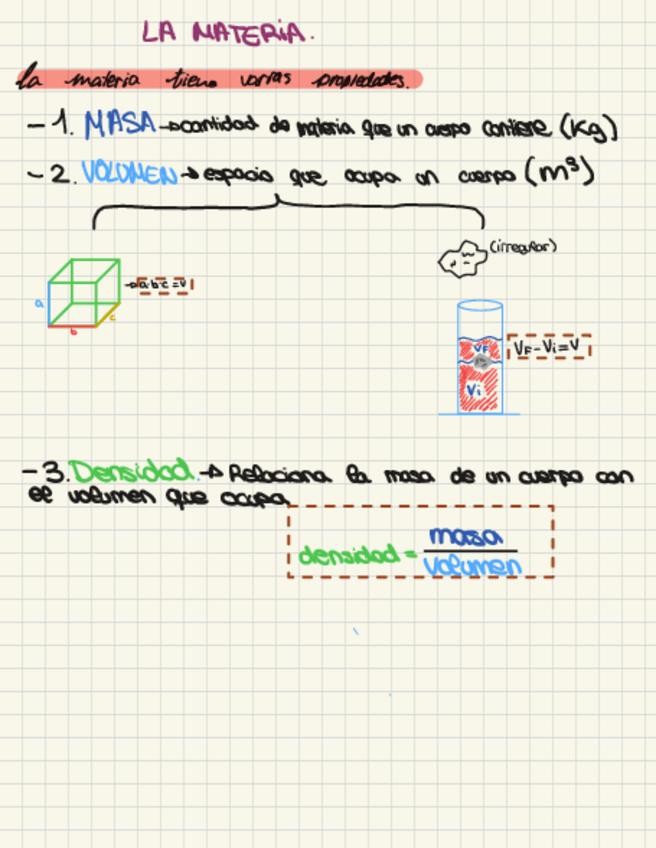 LA MATERIA.
la materia tiene varias propiedades.
-1. MASA→cantidad de materia que un cuerpo contiene (Kg)
-2. VOLUMEN→espacio que ocupa un cuerpo (m³)
(irregular)
→a·b·c=V
a
b
c
VF
VF-Vi=V
Vi
-3. Densidad.→Relaciona la masa de un cuerpo con
el volumen que ocupa
densidad = masa
volumen